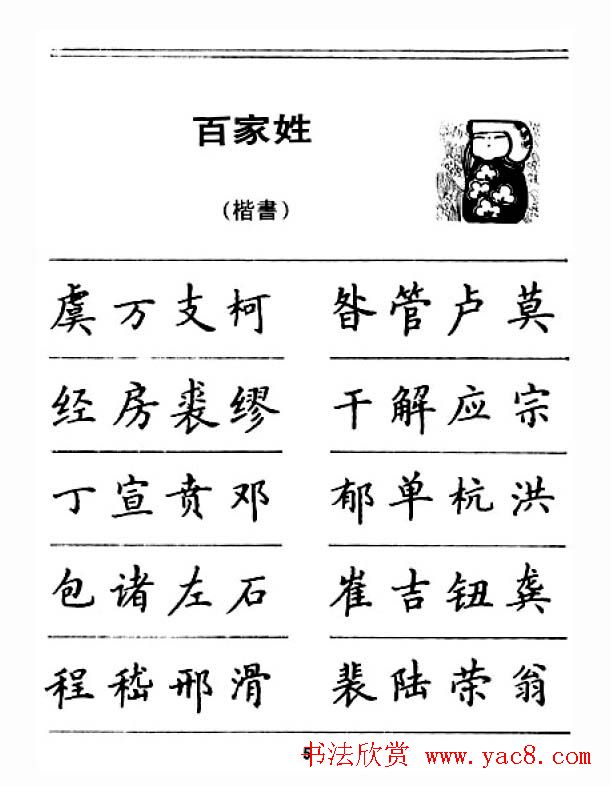 百家姓
(楷書)
虞万支柯 昝管卢莫
经房裘缪 干解应宗
丁宣贲邓 郁单杭洪
包诸左石 崔吉钮龚
程嵇邢滑 裴陆荣翁
5
书法欣赏 www.yac8.com